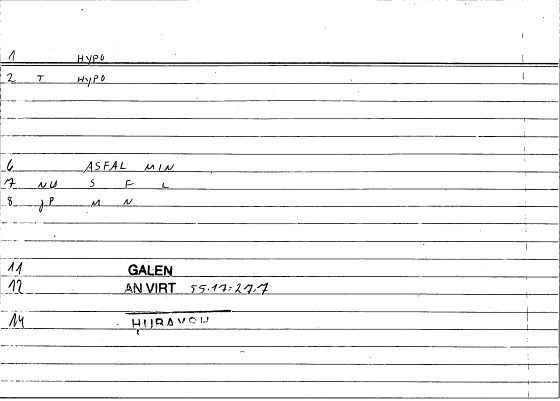 1 HYPO
2 T HYPO
6 ASFAL MIN
7 NU S F L
8 JP M N
11 GALEN
12 AN VIRT 55.17:27.7
14